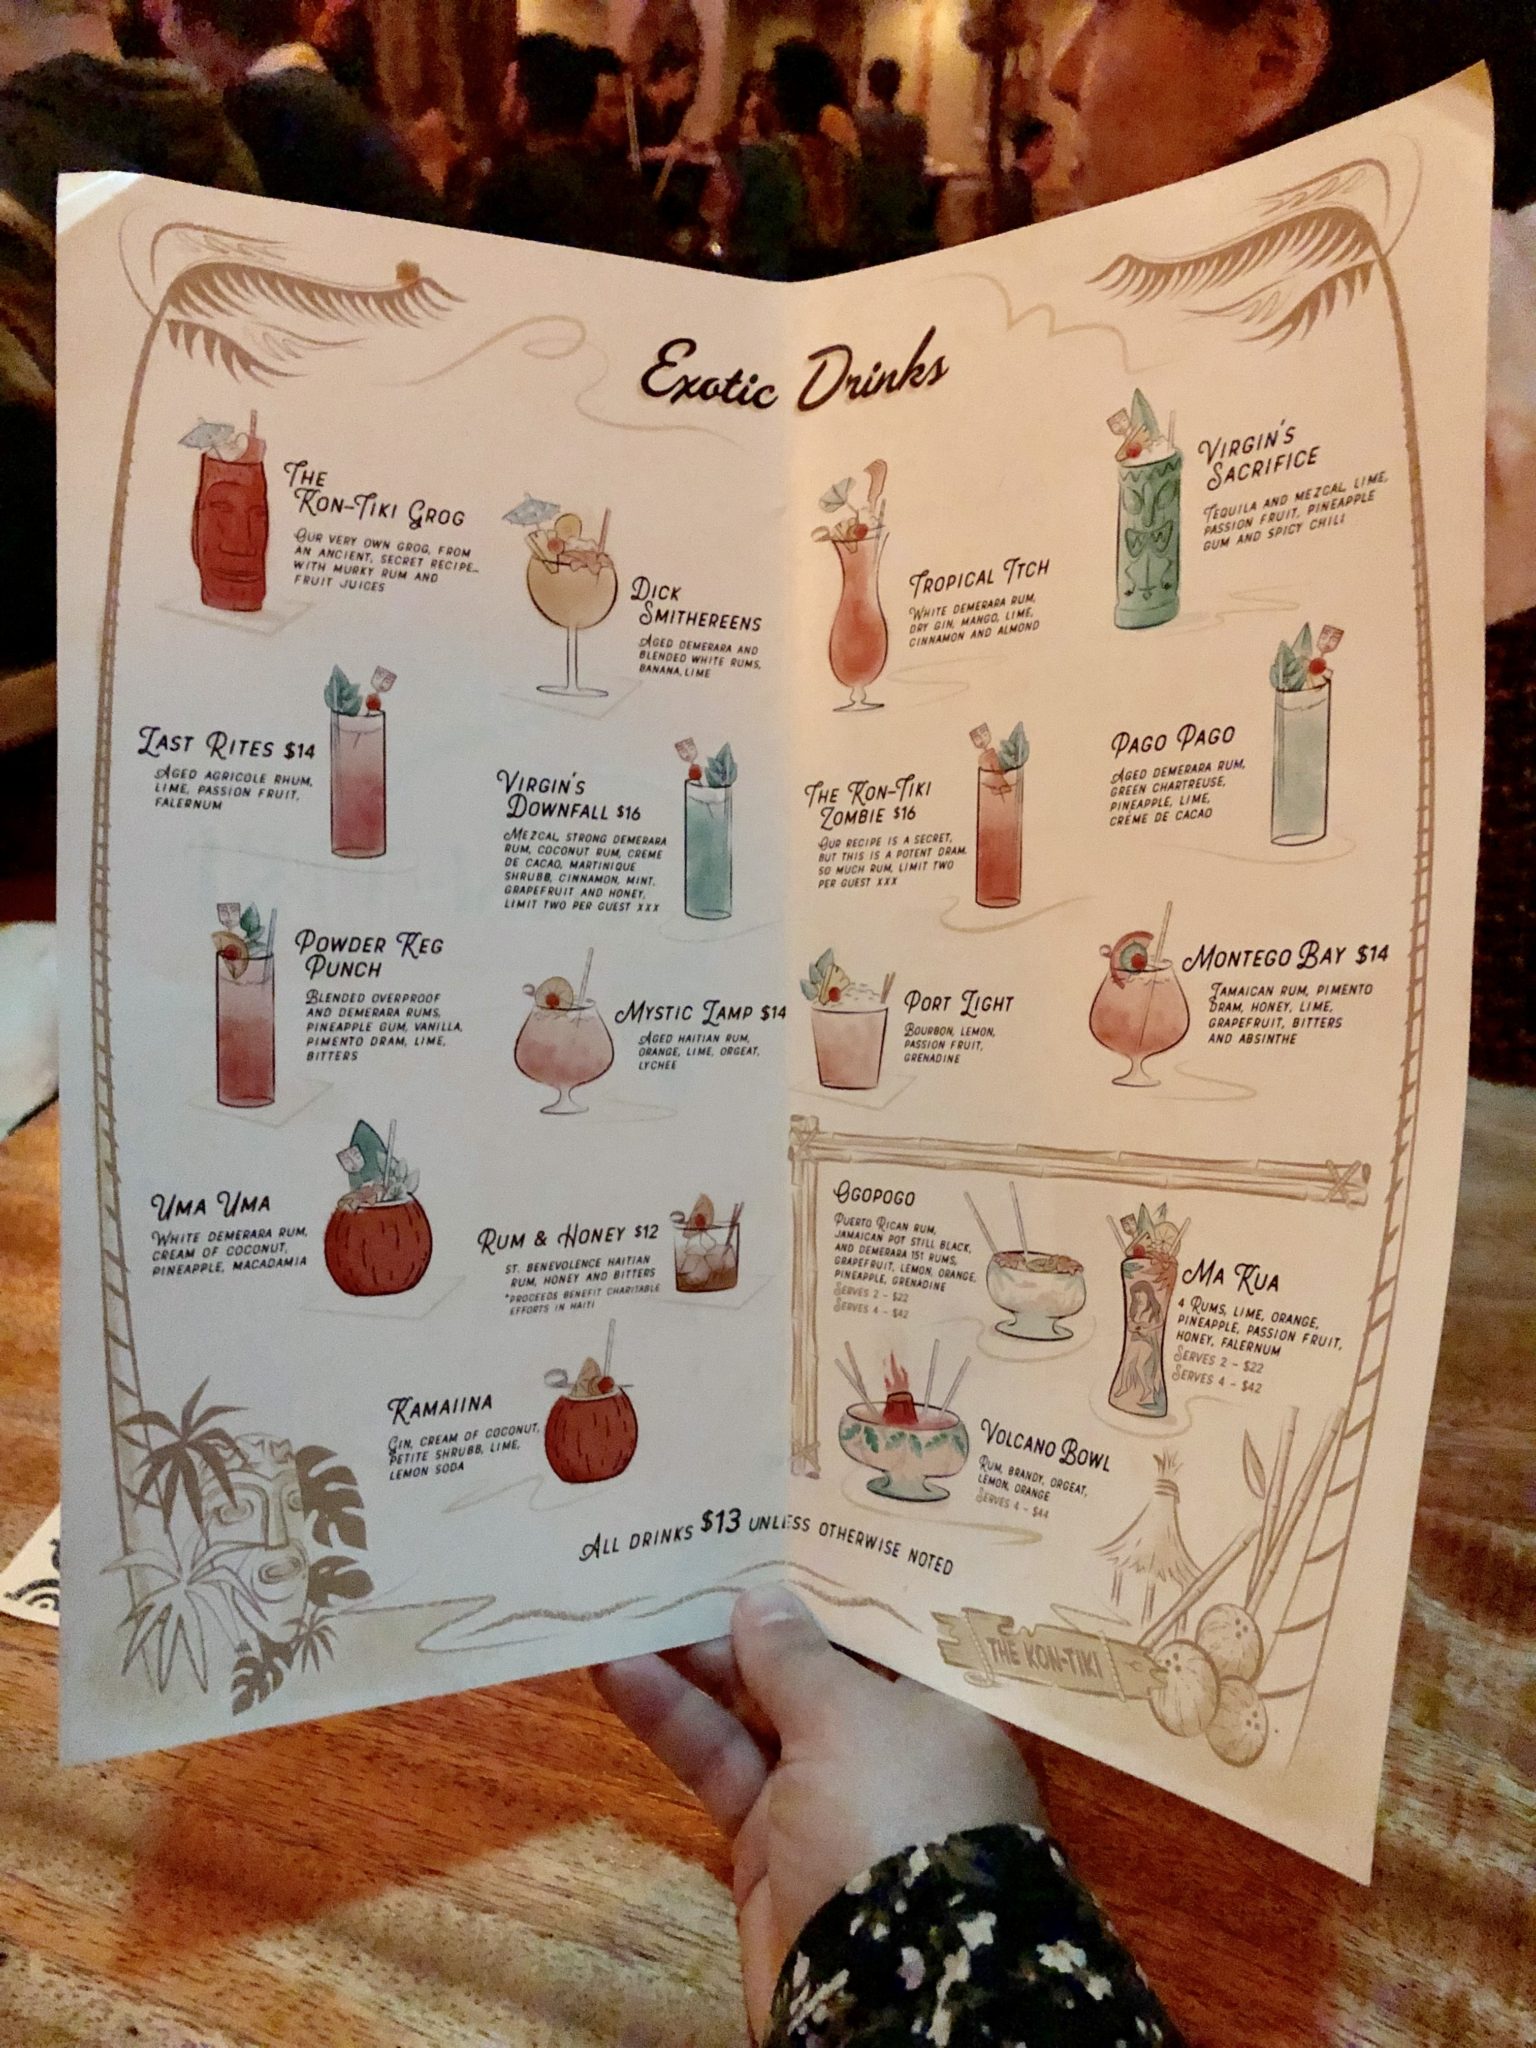 Exotic Drinks
The
Kon-Tiki Grog
Our very own grog, from
an ancient, secret recipe...
with murky rum and
fruit juices
Dick
Smithereens
Aged demerara and
blended white rums,
banana, lime
Last Rites $14
Aged agricole rhum,
lime, passion fruit,
falernum
Virgin's
Downfall $16
Mezcal, strong demerara
rum, coconut rum, creme
de cacao, martinique
shrubb, cinnamon, mint,
grapefruit and honey,
limit two per guest xxx
Powder Keg
Punch
Blended overproof
and demerara rums,
pineapple gum, vanilla,
pimento dram, lime,
bitters
Mystic Lamp $14
Aged Haitian rum,
orange, lime, orgeat,
lychee
Uma Uma
White demerara rum,
cream of coconut,
pineapple, macadamia
Rum & Honey $12
St. Benevolence Haitian
rum, honey and bitters
*Proceeds benefit charitable
efforts in Haiti
Kamaiina
Gin, cream of coconut,
petite shrubb, lime,
lemon soda
Tropical Itch
White demerara rum,
dry gin, mango, lime,
cinnamon and almond
Virgin's
Sacrifice
Tequila and mezcal, lime,
passion fruit, pineapple
gum and spicy chili
The Kon-Tiki
Zombie $16
Our recipe is a secret,
but this is a potent dram.
So much rum, limit two
per guest xxx
Pago Pago
Aged demerara rum,
green chartreuse,
pineapple, lime,
crème de cacao
Port Light
Bourbon, lemon,
passion fruit,
grenadine
Montego Bay $14
Jamaican rum, pimento
dram, honey, lime,
grapefruit, bitters
and absinthe
Ogopogo
Puerto Rican rum,
Jamaican pot still black,
and demerara 151 rums,
grapefruit, lemon, orange,
pineapple, grenadine
Serves 2 - $22
Serves 4 - $42
Ma Kua
4 rums, lime, orange,
pineapple, passion fruit,
honey, falernum
Serves 2 - $22
Serves 4 - $42
Volcano Bowl
Rum, brandy, orgeat,
lemon, orange
Serves 4 - $44
All drinks $13 unless otherwise noted
THE KON-TIKI